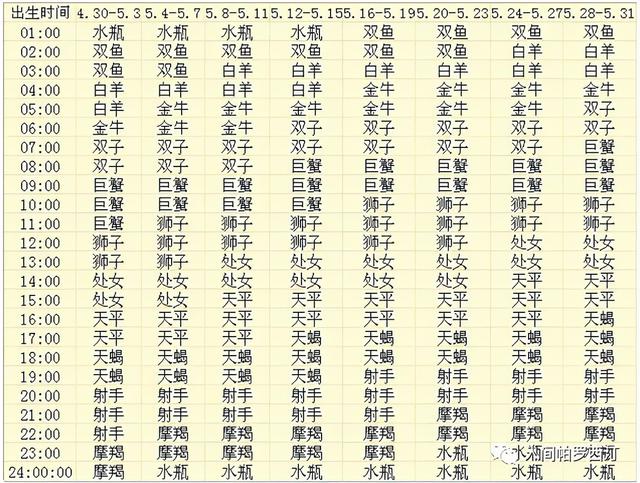 出生时间 4.30-5.3 5.4-5.7 5.8-5.11 5.12-5.15 5.16-5.19 5.20-5.23 5.24-5.27 5.28-5.31
01:00 水瓶 水瓶 水瓶 水瓶 双鱼 双鱼 双鱼 双鱼
02:00 双鱼 双鱼 双鱼 双鱼 双鱼 双鱼 白羊 白羊
03:00 双鱼 双鱼 白羊 白羊 白羊 白羊 白羊 白羊
04:00 白羊 白羊 白羊 白羊 金牛 金牛 金牛 金牛
05:00 白羊 金牛 金牛 金牛 金牛 金牛 金牛 双子
06:00 金牛 金牛 金牛 双子 双子 双子 双子 双子
07:00 双子 双子 双子 双子 双子 双子 双子 巨蟹
08:00 双子 双子 双子 巨蟹 巨蟹 巨蟹 巨蟹 巨蟹
09:00 巨蟹 巨蟹 巨蟹 巨蟹 巨蟹 巨蟹 巨蟹 巨蟹
10:00 巨蟹 巨蟹 巨蟹 巨蟹 狮子 狮子 狮子 狮子
11:00 巨蟹 狮子 狮子 狮子 狮子 狮子 狮子 狮子
12:00 狮子 狮子 狮子 狮子 狮子 狮子 处女 处女
13:00 狮子 狮子 处女 处女 处女 处女 处女 处女
14:00 处女 处女 处女 处女 处女 处女 天平 天平
15:00 处女 处女 天平 天平 天平 天平 天平 天平
16:00 天平 天平 天平 天平 天平 天平 天平 天蝎
17:00 天平 天平 天平 天蝎 天蝎 天蝎 天蝎 天蝎
18:00 天蝎 天蝎 天蝎 天蝎 天蝎 天蝎 天蝎 天蝎
19:00 天蝎 天蝎 天蝎 天蝎 射手 射手 射手 射手
20:00 射手 射手 射手 射手 射手 射手 射手 射手
21:00 射手 射手 射手 射手 射手 摩羯 摩羯 摩羯
22:00 射手 摩羯 摩羯 摩羯 摩羯 摩羯 摩羯 摩羯
23:00 摩羯 摩羯 摩羯 摩羯 摩羯 水瓶
24:00:00 摩羯 水瓶 水瓶 水瓶 水瓶 水瓶 水瓶 水瓶